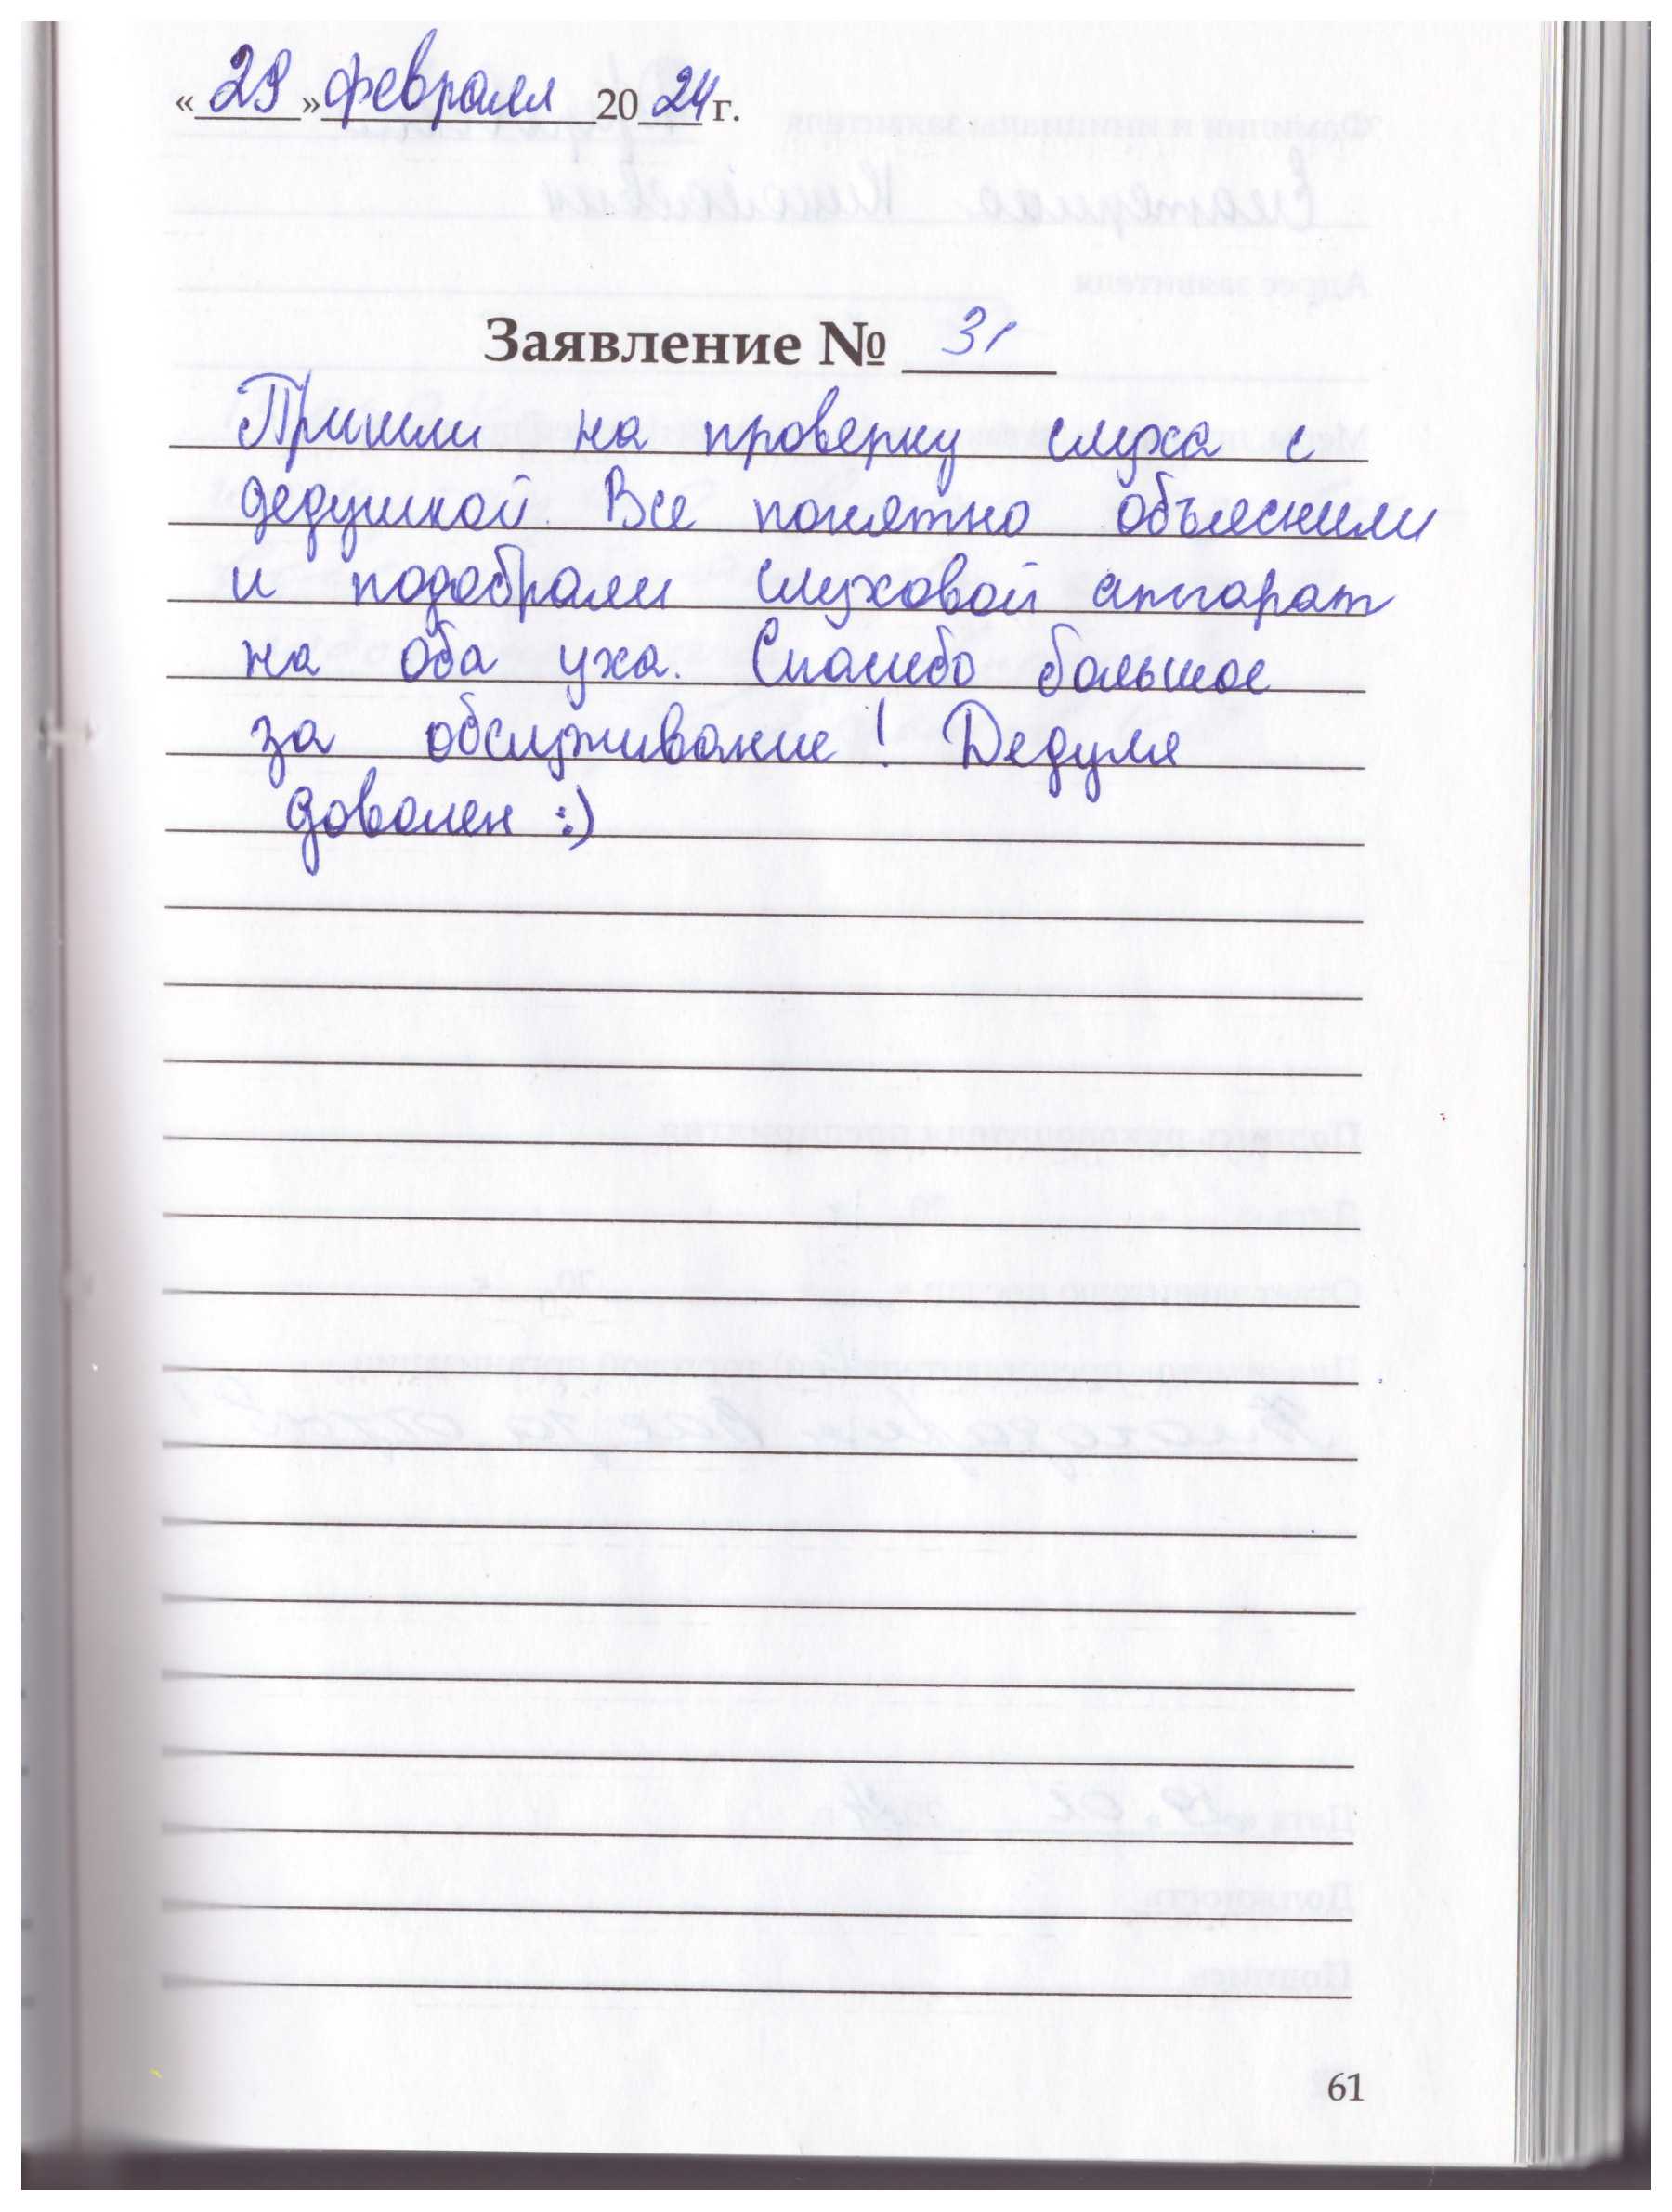 «29» февраля 2024 г.
Заявление № 31
Пришли на проверку слуха с
дедушкой. Все понятно объяснили
и подобрали слуховой аппарат
на оба уха. Спасибо большое
за обслуживание! Дедуля
доволен :)
61